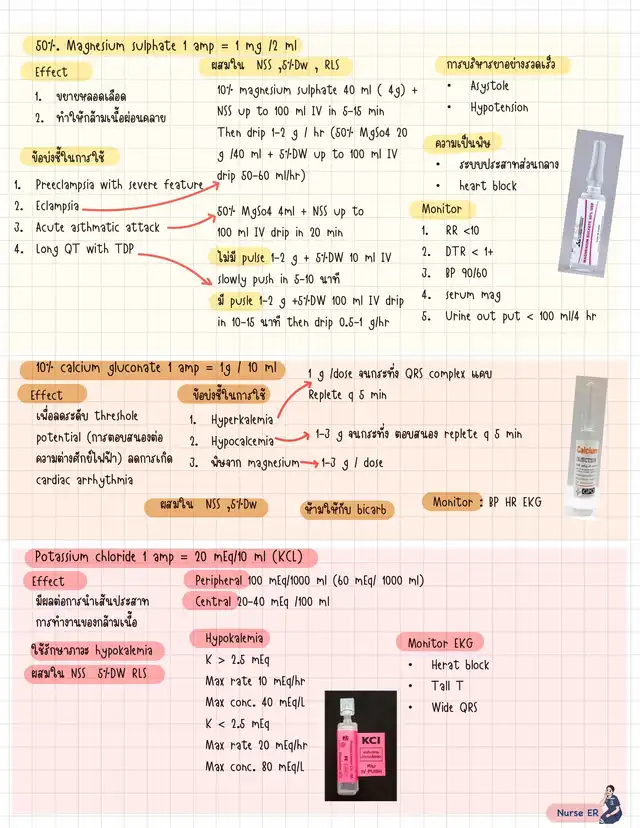 50%. Magnesium sulphate 1 amp = 1 mg /2 ml
Effect
1. ขยายหลอดเลือด
2. ทำให้กล้ามเนื้อผ่อนคลาย
ข้อบ่งชี้ในการใช้
1. Preeclampsia with severe feature
2. Eclampsia
3. Acute asthmatic attack
4. Long QT with TDP
ผสมใน NSS ,5%Dw , RLS
10% magnesium sulphate 40 ml ( 4g) +
NSS up to 100 ml IV in 5-15 min
Then drip 1-2 g / hr (50% MgSo4 20
g /40 ml + 5%DW up to 100 ml IV
drip 50-60 ml/hr)
50% MgSo4 4ml + NSS up to
100 ml IV drip in 20 min
ไม่มี pulse 1-2 g + 5%DW 10 ml IV
slowly push in 5-10 นาที
มี pusle 1-2 g +5%DW 100 ml IV drip
in 10-15 นาที then drip 0.5-1 g/hr
การบริหารยาอย่างรวดเร็ว
• Asystole
• Hypotension
ความเป็นพิษ
• ระบบประสาทส่วนกลาง
• heart block
Monitor
1. RR <10
2. DTR < 1+
3. BP 90/60
4. serum mag
5. Urine out put < 100 ml/4 hr
10% calcium gluconate 1 amp = 1g / 10 ml
Effect
เพื่อลดระดับ threshole
potential (การตอบสนองต่อ
ความต่างศักย์ไฟฟ้า) ลดการเกิด
cardiac arrhythmia
ข้อบ่งชี้ในการใช้
1. Hyperkalemia
2. Hypocalcemia
3. พิษจาก magnesium
1 g /dose จนกระทั่ง QRS complex แคบ
Replete q 5 min
1-3 g จนกระทั่ง ตอบสนอง replete q 5 min
1-3 g / dose
ผสมใน NSS ,5%Dw
ห้ามให้กับ bicarb
Monitor : BP HR EKG
Calcium
Potassium chloride 1 amp = 20 mEq/10 ml (KCL)
Effect
มีผลต่อการนำเส้นประสาท
การทำงานของกล้ามเนื้อ
ใช้รักษาภาวะ hypokalemia
ผสมใน NSS 5%DW RLS
Peripheral 100 mEq/1000 ml (60 mEq/ 1000 ml)
Central 20-40 mEq /100 ml
Hypokalemia
K > 2.5 mEq
Max rate 10 mEq/hr
Max conc. 40 mEq/L
K < 2.5 mEq
Max rate 20 mEq/hr
Max conc. 80 mEq/L
Monitor EKG
• Herat block
• Tall T
• Wide QRS
KCl
Nurse ER